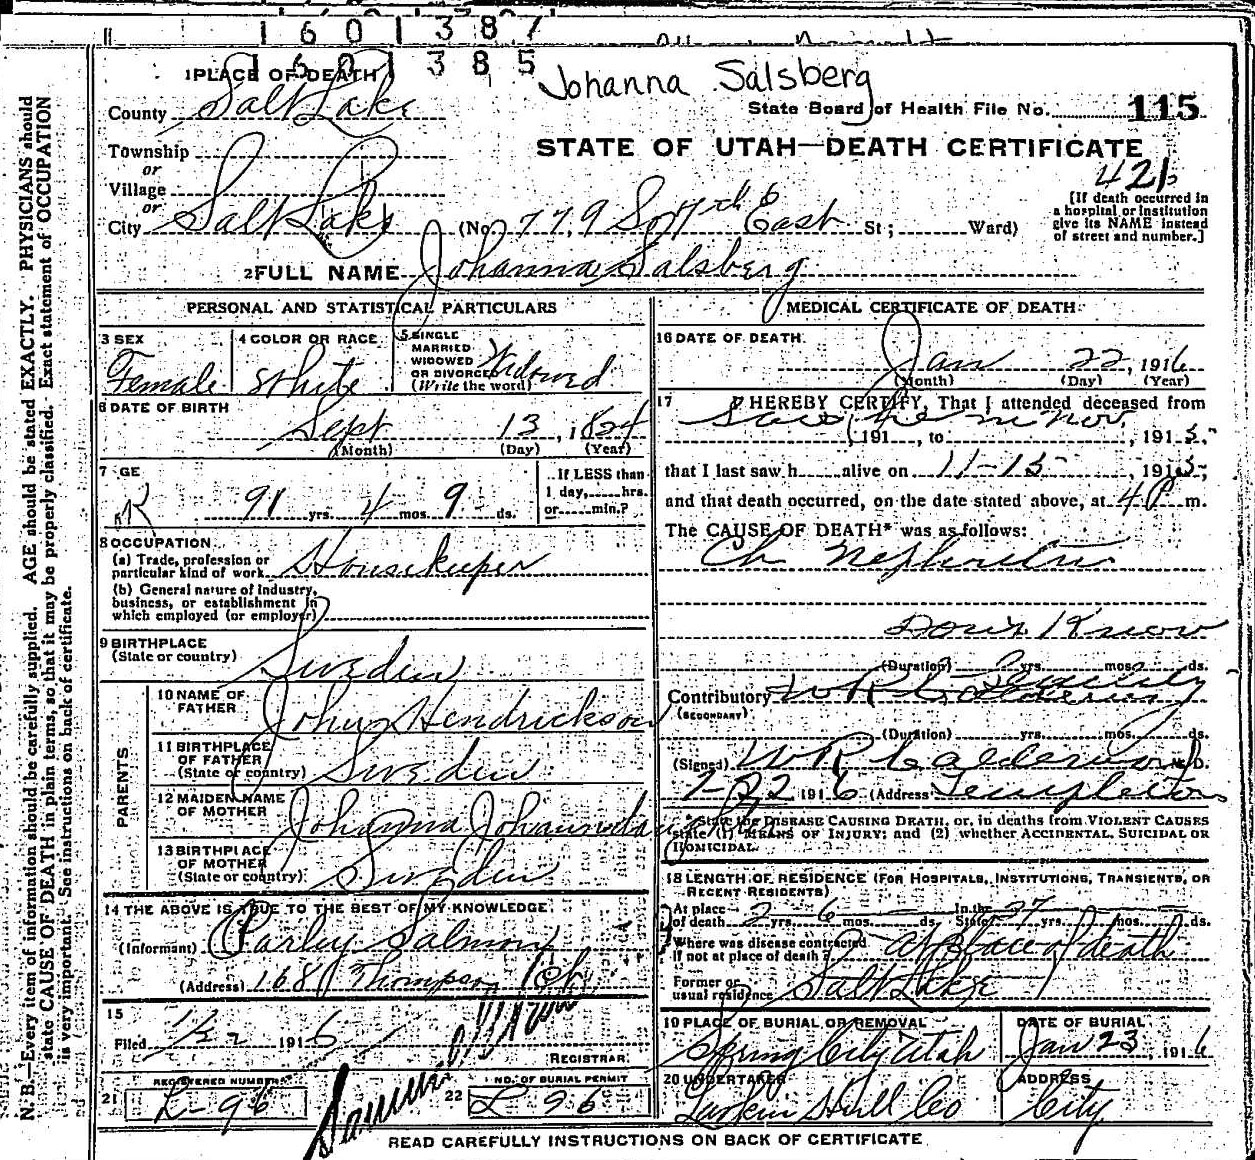 1601387
1601385
Johanna Salsberg
1 PLACE OF DEATH
County Salt Lake
State Board of Health File No. 115
Township
or
Village
or
City Salt Lake
STATE OF UTAH—DEATH CERTIFICATE
421
(No. 779 So 7th East St; Ward)
[If death occurred in
a hospital or institution
give its NAME instead
of street and number.]
2 FULL NAME Johanna Salsberg
PERSONAL AND STATISTICAL PARTICULARS
3 SEX
Female
4 COLOR OR RACE
White
5 SINGLE
MARRIED
WIDOWED
OR DIVORCED
(Write the word)
Widowed
6 DATE OF BIRTH
Sept 13, 1824
(Month) (Day) (Year)
7 GE
91 yrs. 4 mos. 9 ds.
If LESS than
1 day, hrs.
or min.?
8 OCCUPATION
(a) Trade, profession or
particular kind of work Housekeeper
(b) General nature of industry,
business, or establishment in
which employed (or employer)
9 BIRTHPLACE
(State or country) Sweden
PARENTS
10 NAME OF
FATHER John Hendrickson
11 BIRTHPLACE
OF FATHER
(State or country) Sweden
12 MAIDEN NAME
OF MOTHER Johanna
13 BIRTHPLACE
OF MOTHER
(State or country) Sweden
14 THE ABOVE IS TRUE TO THE BEST OF MY KNOWLEDGE
(Informant) Parley Salmon
(Address) 168 Thompson
15
Filed 1/22 1916
REGISTRAR
REGISTERED NUMBER
21 L-96
NO. OF BURIAL PERMIT
22 L 96
MEDICAL CERTIFICATE OF DEATH
16 DATE OF DEATH
Jan 22, 1916
(Month) (Day) (Year)
17 I HEREBY CERTIFY, That I attended deceased from
Saw her in Nov.
, 191 , to , 1915.
that I last saw h alive on 11-15, 1915;
and that death occurred, on the date stated above, at 4 P m.
The CAUSE OF DEATH* was as follows:
Ch Nephritis
Don't Know
(Duration) yrs. mos. ds.
Contributory Senility
(SECONDARY)
(Duration) yrs. mos. ds.
(Signed) W R Calderwood M.D.
1-22 1916 (Address) Templeton
*State the DISEASE CAUSING DEATH, or, in deaths from VIOLENT CAUSES
state (1) MEANS OF INJURY; and (2) whether ACCIDENTAL, SUICIDAL OR
HOMICIDAL.
18 LENGTH OF RESIDENCE (FOR HOSPITALS, INSTITUTIONS, TRANSIENTS, OR
RECENT RESIDENTS)
At place
of death 2 yrs. 6 mos. ds. In the
State 37 yrs. mos. ds.
Where was disease contracted
If not at place of death? at Place of death
Former or
usual residence Salt Lake
19 PLACE OF BURIAL OR REMOVAL
Spring City Utah
DATE OF BURIAL
Jan 23, 1916
20 UNDERTAKER
Larkin Hull Co
ADDRESS
City
READ CAREFULLY INSTRUCTIONS ON BACK OF CERTIFICATE
N. B.—Every item of information should be carefully supplied. AGE should be stated EXACTLY. PHYSICIANS should
state CAUSE OF DEATH in plain terms, so that it may be properly classified. Exact statement of OCCUPATION
is very important. See instructions on back of certificate.